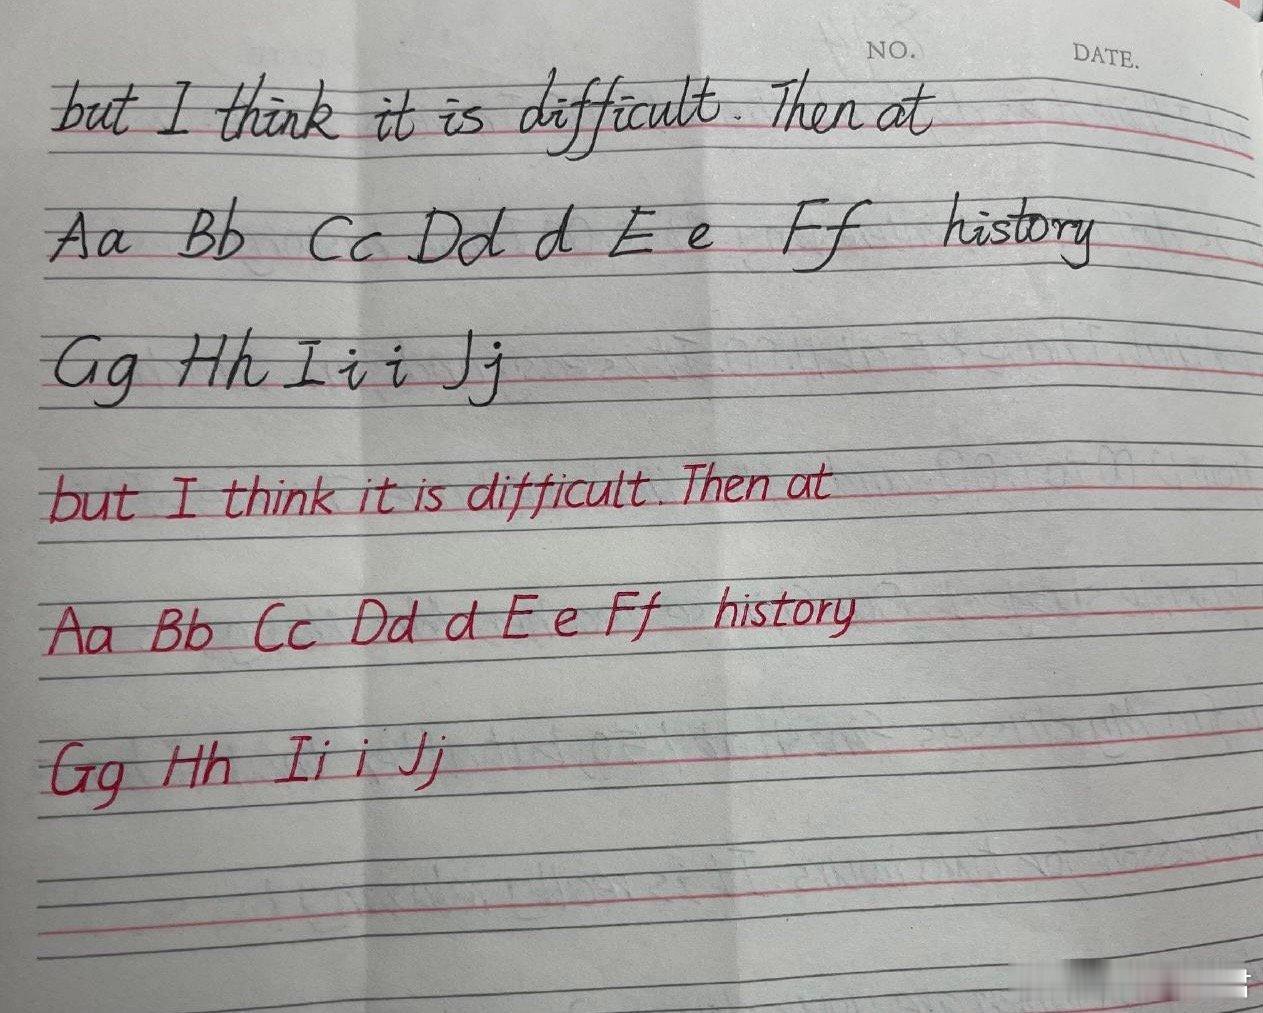 NO. DATE.
but I think it is difficult. Then at
Aa Bb Cc Dd d E e Ff history
Gg Hh I i i Jj
but I think it is difficult. Then at
Aa Bb Cc Dd d E e Ff history
Gg Hh Ii i Jj